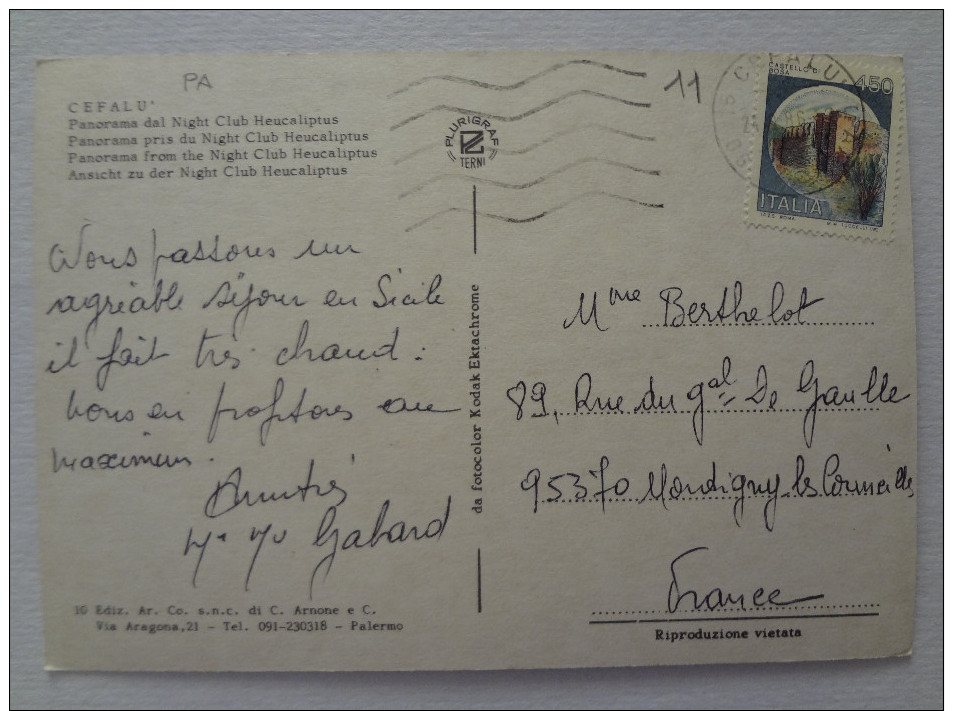 PA
11
CEFALU'
Panorama dal Night Club Heucaliptus
Panorama pris du Night Club Heucaliptus
Panorama from the Night Club Heucaliptus
Ansicht zu der Night Club Heucaliptus
Nous passons un
agréable séjour en Sicile
il fait très chaud :
nous en profitons au
maximum.
Amitiés
Gabard
10 Ediz. Ar. Co. s.n.c. di C. Arnone e C.
Via Aragona,21 - Tel. 091-230318 - Palermo
PLURIGRAF
TERNI
da fotocolor Kodak Ektachrome
CEFALU'
CASTELLO DI
BOSA
450
ITALIA
Mme Berthelot
89, Rue du gal De Gaulle
95370 Montigny-les Cormeilles
France
Riproduzione vietata